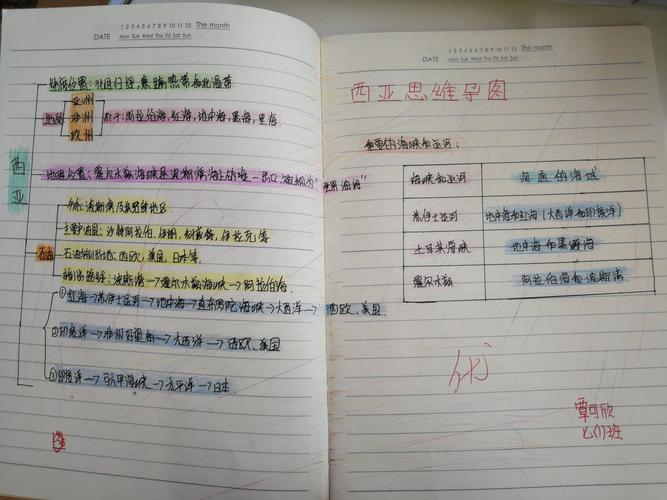 1 2 3 4 5 6 7 8 9 10 11 12 The month
DATE Mon Tue Wed Thu Fri Sat Sun
纬度位置:北回归线,热带和北温带
亚洲
非洲
欧洲
阿拉伯海,红海,地中海,里海,黑海.
西亚
霍尔木兹海峡是波斯湾海上的唯一出口
石油
分布:波斯湾及
主要产油国:沙特阿拉伯,伊朗,科威特,伊拉克等
石油输出地:西欧,美国,日本等.
输出路线:波斯湾→霍尔木兹海峡→阿拉伯海.
①红海→苏伊士运河→地中海→直布罗陀海峡→大西洋→西欧、美国
②印度洋→非洲好望角→大西洋→西欧、美国
③印度洋→马六甲海峡→太平洋→日本.
1 2 3 4 5 6 7 8 9 10 11 12 The month
DATE Mon Tue Wed Thu Fri Sat Sun
西亚思维导图
重要的海峡和运河:
海峡和运河 沟通的海域
苏伊士运河 地中海和红海(大西洋和印度洋)
土耳其海峡 地中海和黑海
霍尔木兹 阿拉伯海和波斯湾
优
覃可欣